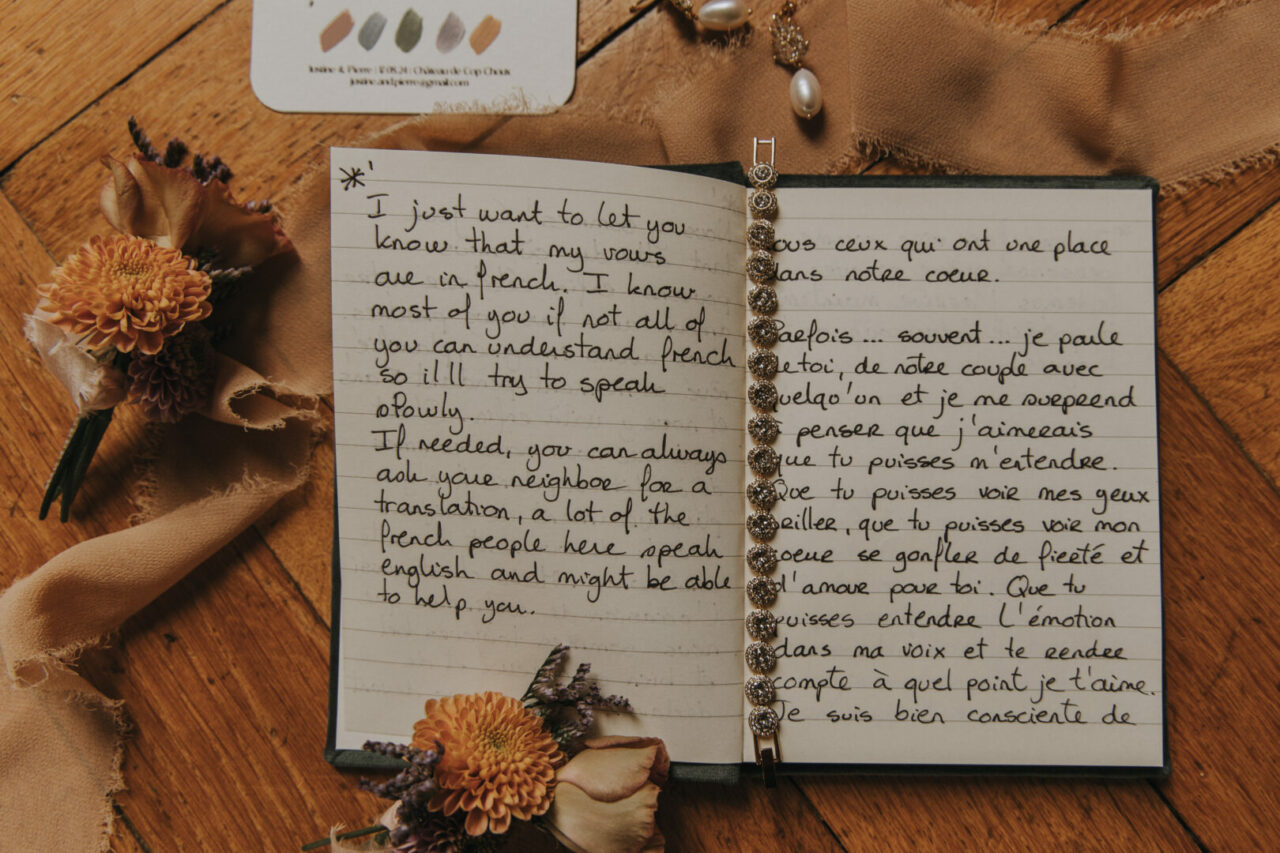 Justine & Pierre | Château de Cop Choux
justine.and.pierre@gmail.com
*'
I just want to let you
know that my vows
are in french. I know
most of you if not all of
you can understand french
so i'll try to speak
slowly.
If needed, you can always
ask your neighbor for a
translation, a lot of the
french people here speak
english and might be able
to help you.
ous ceux qui ont une place
dans notre coeur.
Parfois ... souvent ... je parle
de toi, de notre couple avec
quelqu'un et je me surprend
à penser que j'aimerais
que tu puisses m'entendre.
Que tu puisses voir mes yeux
briller, que tu puisses voir mon
coeur se gonfler de fierté et
d'amour pour toi. Que tu
puisses entendre l'émotion
dans ma voix et te rendre
compte à quel point je t'aime.
Je suis bien consciente de